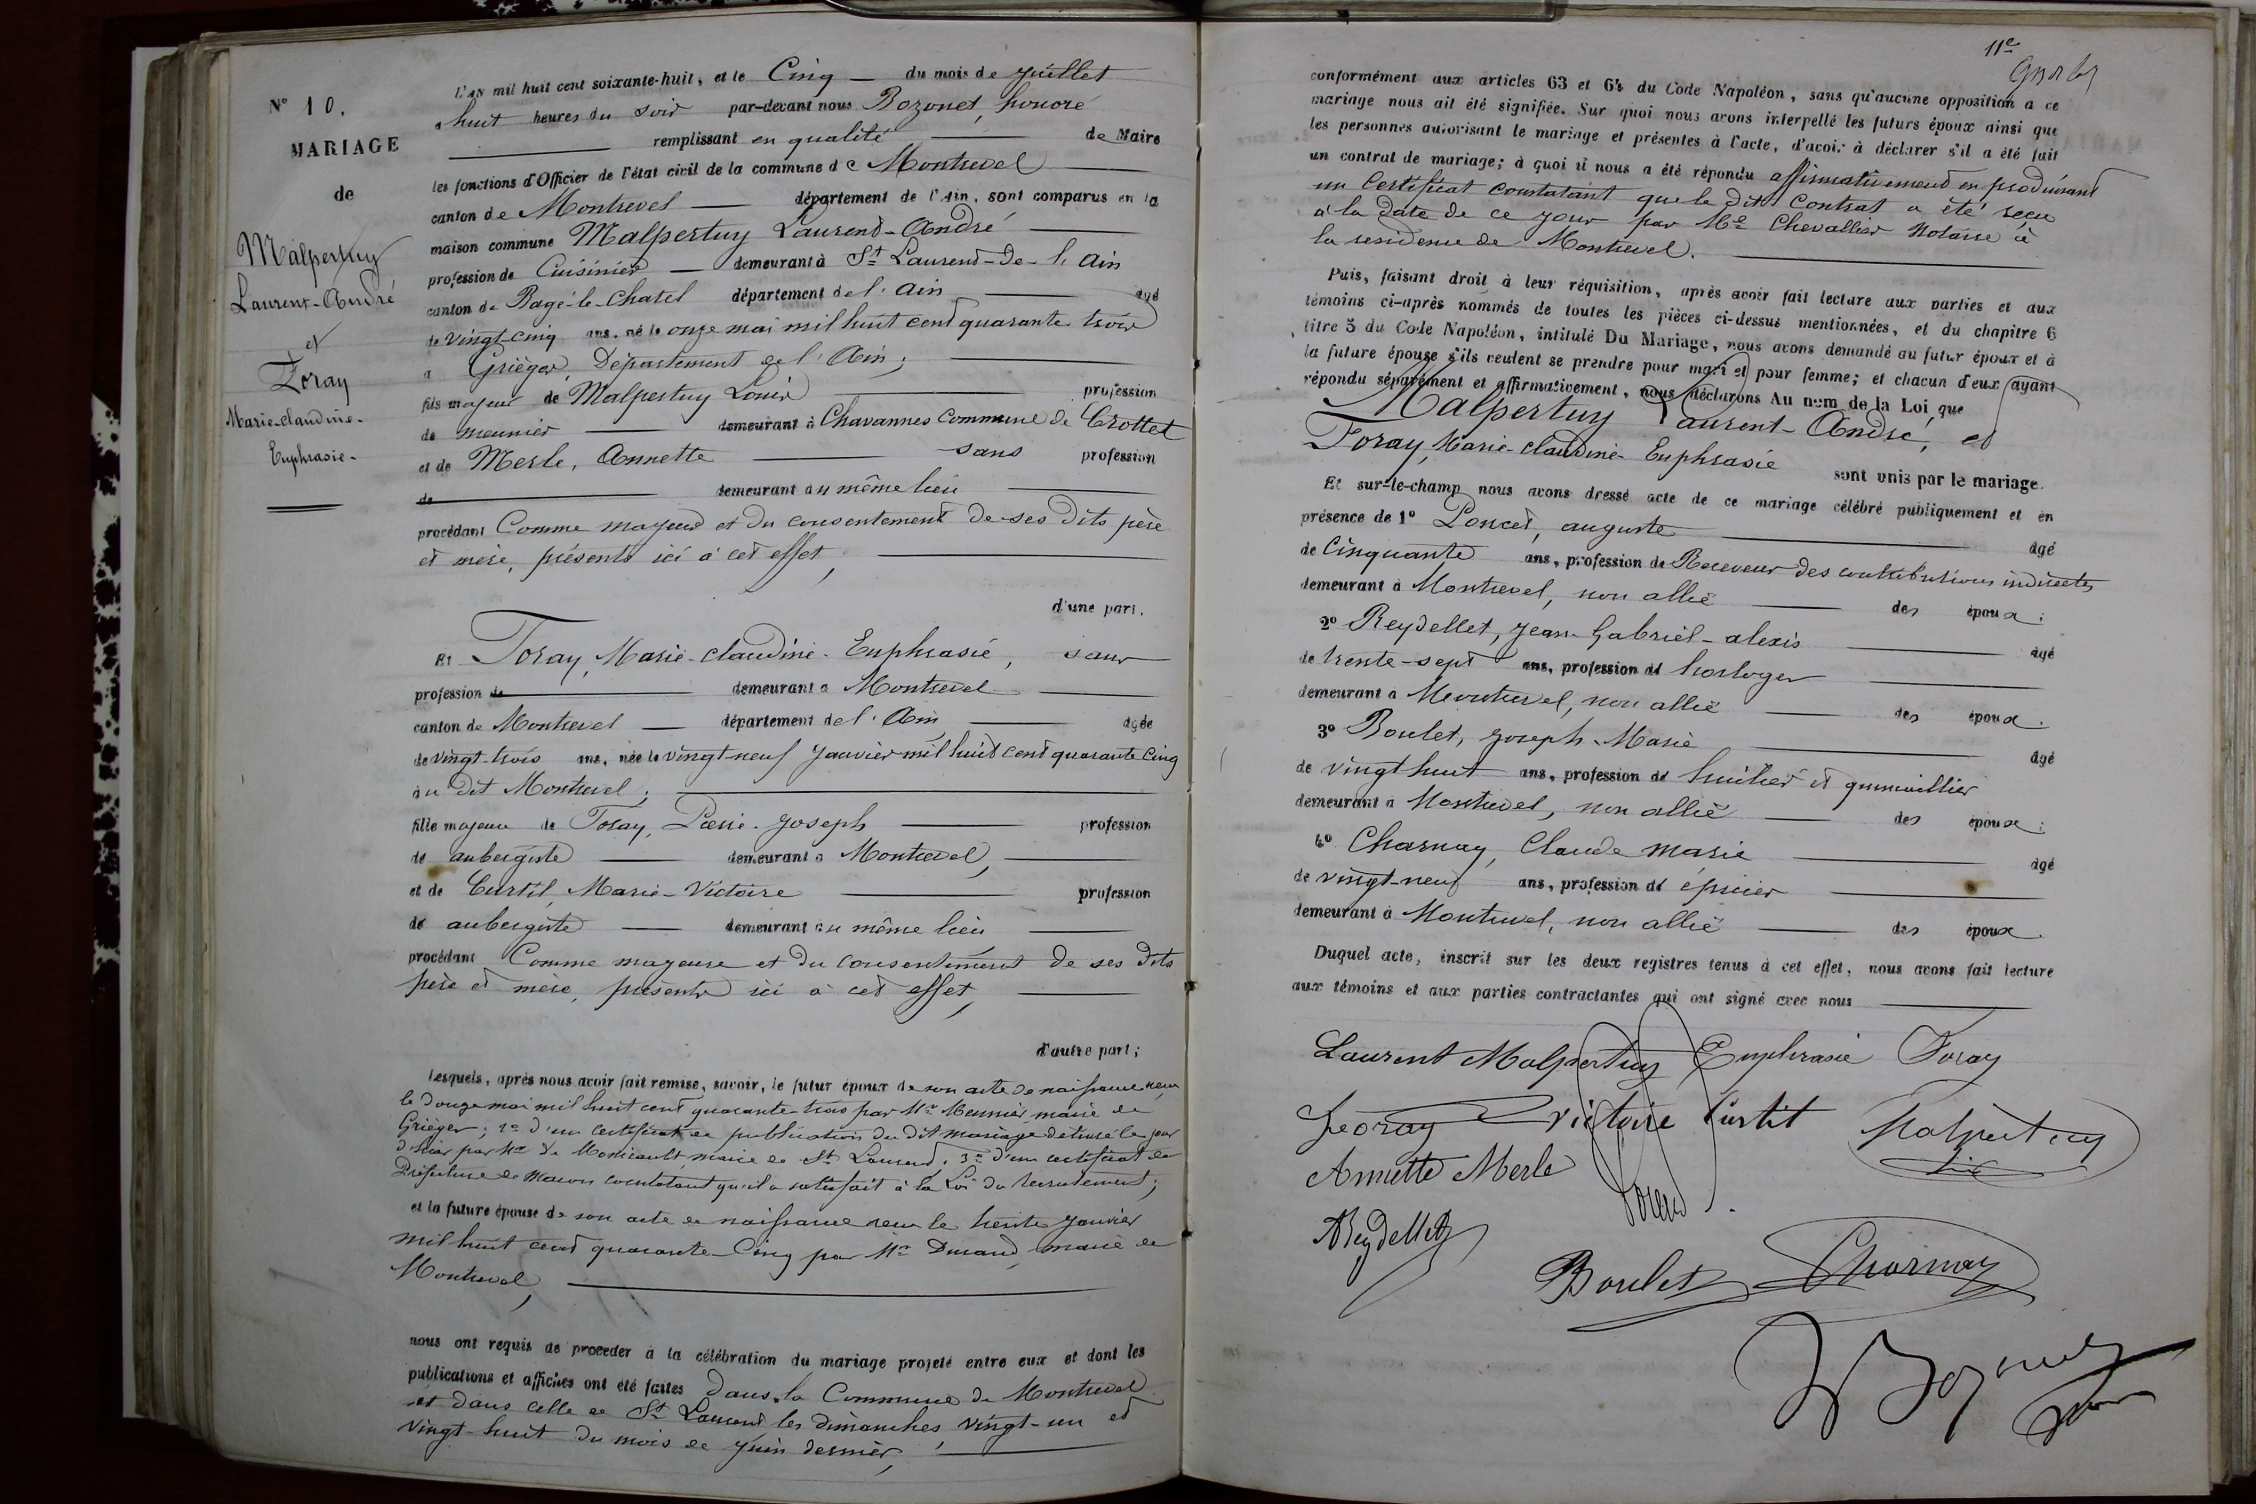 N° 10.
MARIAGE
de
Malpertuy
Laurent-André
et
Foray
Marie-claudine-
Euphrasie-
L'an mil huit cent soixante-huit, et le Cinq du mois de juillet
a huit heures du soir par-devant nous Bozonet, honoré
remplissant en qualité de Maire
les fonctions d'Officier de l'état civil de la commune de Montrevel
canton de Montrevel département de l'Ain, sont comparus en la
maison commune Malpertuy Laurent-André
profession de Cuisinier demeurant à St Laurent-de-l'Ain
canton de Bagé-le-Chatel département de l'Ain agé
de vingt-cinq ans, né le onze mai mil huit cent quarante trois
a Grièges, Département de l'Ain;
fils majeur de Malpertuy Louis profession
de meunier demeurant à Chavannes commune de Crottet
et de Merle, Annette sans profession
de demeurant au même lieu
procédant Comme majeur et du consentement de ses dits père
et mère, présents ici à cet effet,
d'une part.
Et Foray, Marie-claudine-Euphrasie, sans
profession de demeurant a Montrevel
canton de Montrevel département de l'Ain agée
de vingt-trois ans, née le vingt-neuf janvier mil huit cent quarante cinq
au dit Montrevel;
fille majeure de Foray, Pierre-Joseph profession
de aubergiste demeurant a Montrevel,
et de Curtil, Marie-Victoire profession
de aubergiste demeurant au même lieu
procédant Comme majeure et du consentement de ses dits
père et mère, présents ici à cet effet,
d'autre part;
Lesquels, après nous avoir fait remise, savoir, le futur époux de son acte de naissance reçu
le douze mai mil huit cent quarante-trois par Mr Meunier, maire de
Grièges; 2° d'un certificat de publication du dit mariage délivré le jour
d'hier par Mr de Monicault, maire de St Laurent; 3° d'un certificat de
Préfecture de Macon constatant qu'il a satisfait à la Loi du recrutement;
et la future épouse de son acte de naissance reçu le trente janvier
mil huit cent quarante-Cinq par Mr Durand, maire de
Montrevel,
nous ont requis de proceder a la célébration du mariage projeté entre eux et dont les
publications et affiches ont été faites dans la Commune de Montrevel
et dans celle de St Laurent les dimanches vingt-un et
vingt-huit du mois de juin dernier,
11e
conformément aux articles 63 et 64 du Code Napoléon, sans qu'aucune opposition a ce
mariage nous ait été signifiée. Sur quoi nous avons interpellé les futurs époux ainsi que
les personnes autorisant le mariage et présentes à l'acte, d'avoir à déclarer s'il a été fait
un contrat de mariage; à quoi il nous a été répondu affirmativement en produisant
un Certificat constatant que le dit Contrat a été reçu
à la date de ce jour par Me Chevallier Notaire à
la residence de Montrevel.
Puis, faisant droit à leur réquisition, après avoir fait lecture aux parties et aux
témoins ci-après nommés de toutes les pièces ci-dessus mentionnées, et du chapitre 6
titre 5 du Code Napoléon, intitulé Du Mariage, nous avons demandé au futur époux et à
la future épouse s'ils veulent se prendre pour mari et pour femme; et chacun d'eux ayant
répondu séparément et affirmativement, nous déclarons Au nom de la Loi que
Malpertuy Laurent-André, et
Foray, Marie-claudine-Euphrasie sont unis par le mariage.
Et sur-le-champ nous avons dressé acte de ce mariage célébré publiquement et en
présence de 1° Poncet, auguste agé
de Cinquante ans, profession de Receveur des contributions indirectes
demeurant à Montrevel, non allié des époux;
2° Reydellet, Jean-Gabriel-alexis agé
de trente-sept ans, profession de horloger
demeurant a Montrevel, non allié des époux.
3° Boulet, Joseph-Marie agé
de vingt huit ans, profession de huilier et quincaillier
demeurant a Montrevel, non allié des époux;
4° Charnay, Claude Marie agé
de vingt-neuf ans, profession de épicier
demeurant à Montrevel, non allié des époux.
Duquel acte, inscrit sur les deux registres tenus à cet effet, nous avons fait lecture
aux témoins et aux parties contractantes qui ont signé avec nous
Laurent Malpertuy Euphrasie Foray
Feoray Victoire Curtil Malpertuy
Annette Merle Poncet
AReydellet
Boulet Charnay
H Bozonet